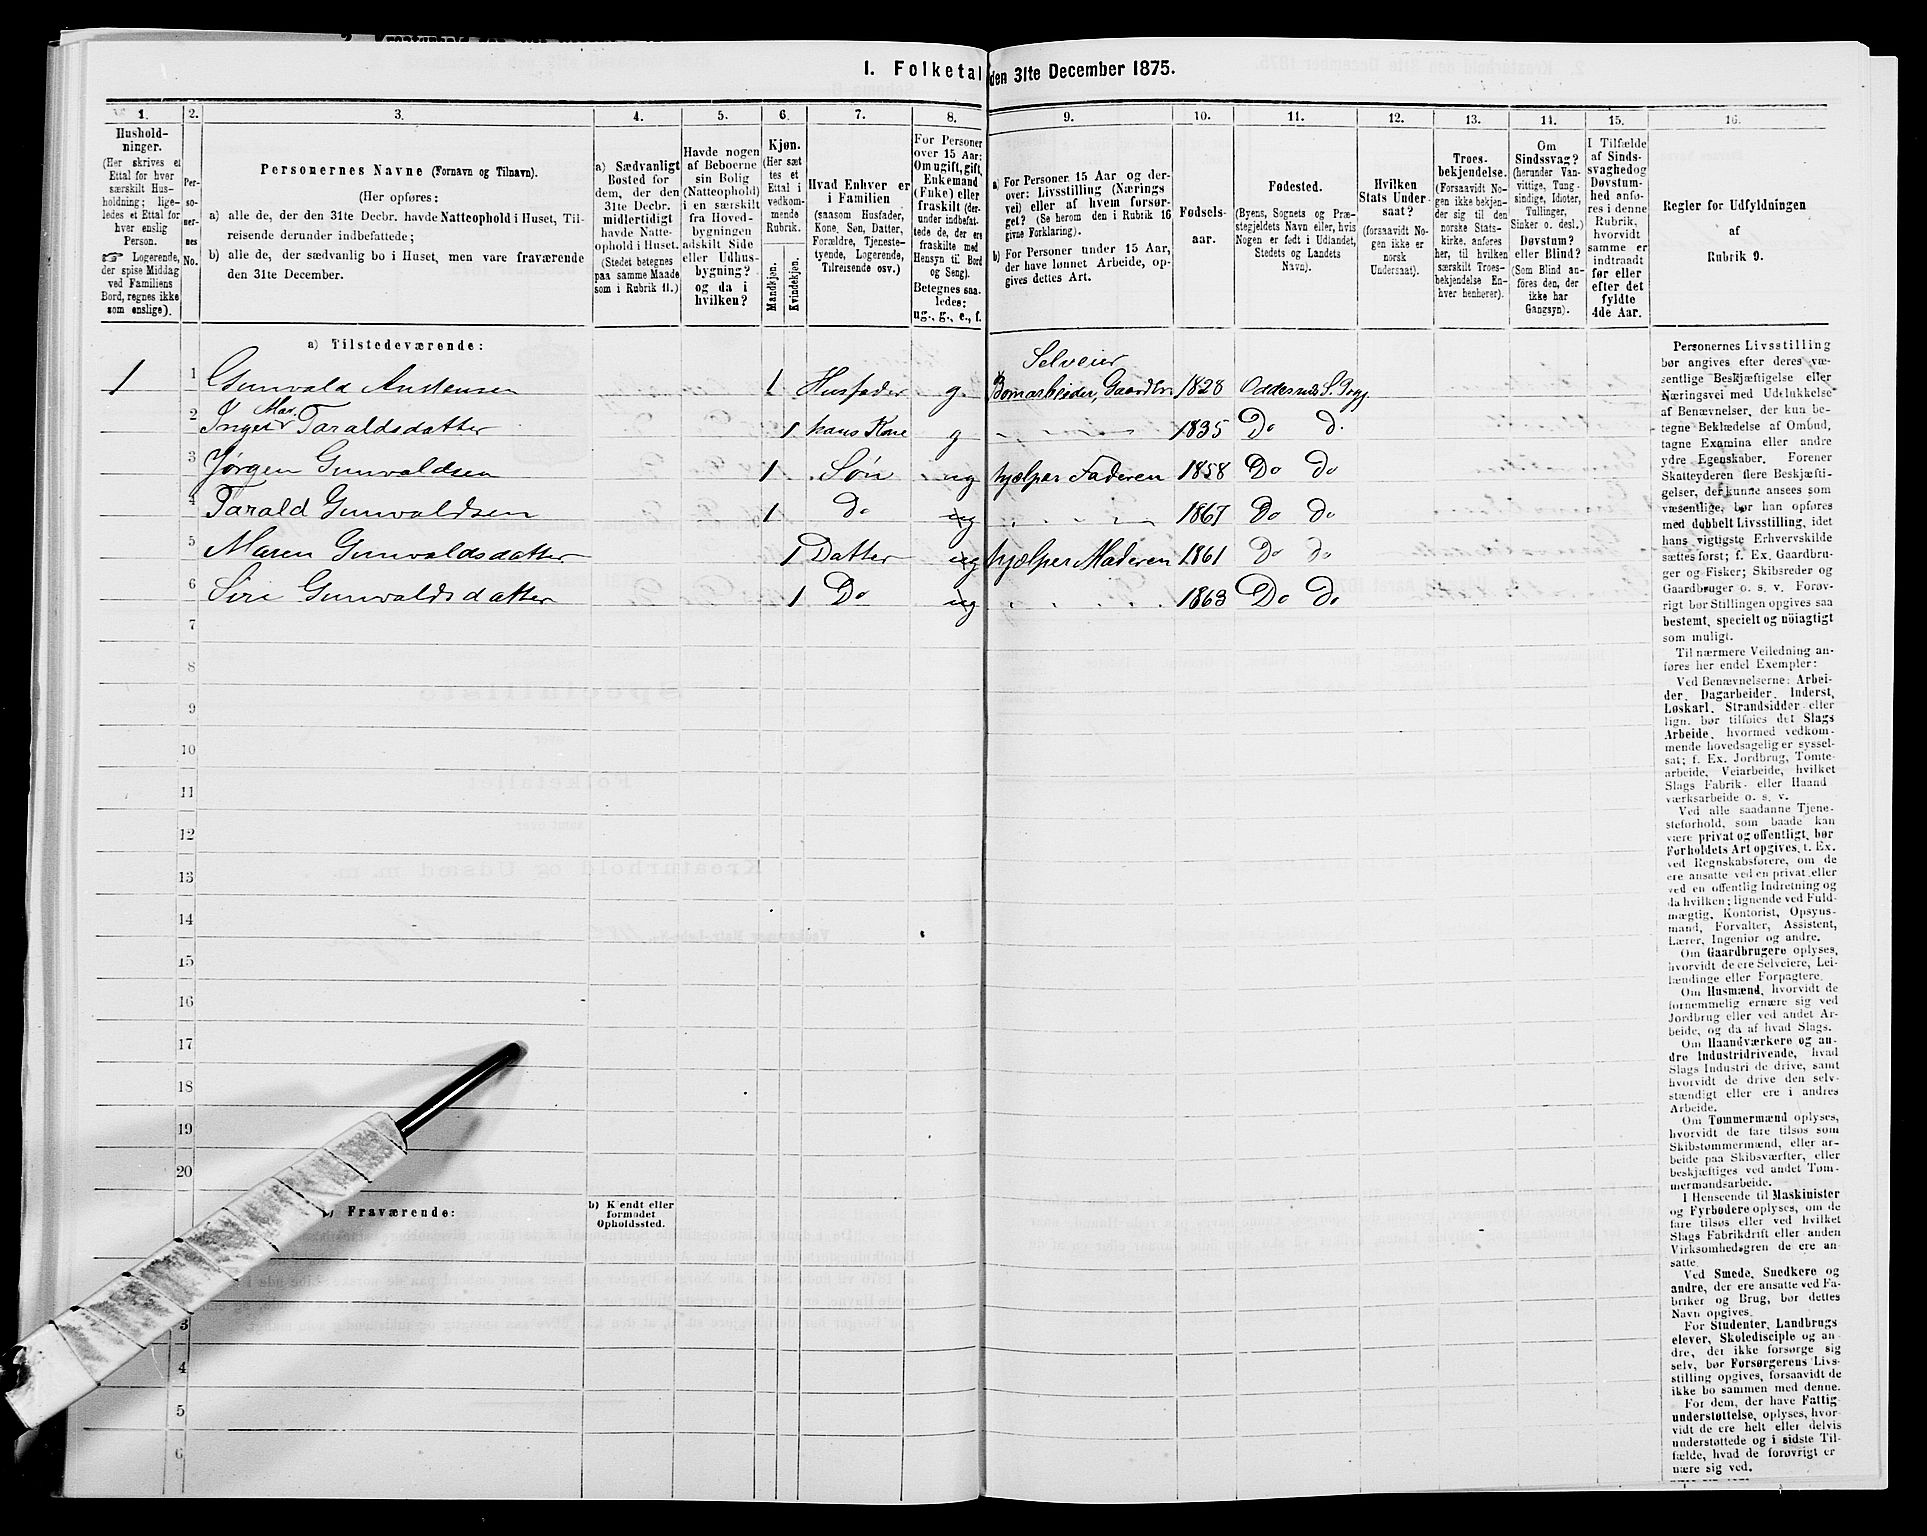 1. Folketal den 31te December 1875.
1. 2. 3. 4. 5. 6. 7. 8. 9. 10. 11. 12. 13. 14. 15. 16.
Hushold-
ninger.
(Her skrives et
Ettal for hver
særskilt Hus-
holdning; lige-
ledes et Ettal for
hver enslig
Person.
Logerende,
der spise Middag
ved Familiens
Bord, regnes ikke
som enslige).
Per-
so-
ner-
nes
No.
Personernes Navne (Fornavn og Tilnavn).
(Her opføres:
a) alle de, der den 31te Decbr. havde Natteophold i Huset, Til-
reisende derunder indbefattede;
b) alle de, der sædvanlig bo i Huset, men vare fraværende
den 31te December.
a) Sædvanligt
Bosted for
dem, der den
31te Decbr.
midlertidigt
havde Natte-
ophold i Huset.
(Stedet betegnes
paa samme Maade
som i Rubrik 11.)
Havde nogen
af Beboerne
sin Bolig
(Natteophold)
i en særskilt
fra Hoved-
bygningen
adskilt Side
eller Udhus-
bygning?
og da i
hvilken?
Kjøn.
(Her sæt-
tes et
Ettal i
vedkom-
mende
Rubrik.
Mandkjøn.
Kvindekjøn.
Hvad Enhver er
i Familien
(saasom Husfader,
Kone, Søn, Datter,
Forældre, Tjeneste-
tyende, Logerende,
Tilreisende osv.)
For Personer
over 15 Aar:
Om ugift, gift,
Enkemand
(Enke) eller
fraskilt (der-
under indbefat-
tede de, der ere
fraskilte med
Hensyn til Bord
og Seng).
Betegnes saa-
ledes:
ug., g., e., f.
a) For Personer 15 Aar og der-
over: Livsstilling (Nærings
vei) eller af hvem forsør-
get? (Se herom den i Rubrik 16
givne Forklaring).
b) For Personer under 15 Aar,
der have lønnet Arbeide, op-
gives dettes Art.
Fødsels-
aar.
Fødested.
(Byens, Sognets og Præ-
stegjeldets Navn eller, hvis
Nogen er født i Udlandet,
Stedets og Landets
Navn).
Hvilken
Stats Under-
saat?
(forsaavidt No-
gen ikke er
norsk
Undersaat).
Troes-
bekjendelse.
(Forsaavidt No-
gen ikke bekjen-
der sig til den
norske Stats-
kirke, anføres
her, til hvilken
særskilt Troes-
bekjendelse En-
hver henhører).
Om
Sindssvag?
(herunder Van-
vittige, Tung-
sindige, Idioter,
Tullinger,
Sinker o. desl.)
Døvstum?
eller Blind?
(Som Blind an-
føres den, der
ikke har
Gangsyn).
I Tilfælde
af Sinds-
svaghed og
Døvstum-
hed anfø-
res i denne
Rubrik,
hvorvidt
samme er
indtraadt
før eller
efter det
fyldte
4de Aar.
Regler for Udfyldningen
af
Rubrik 9.
a) Tilstedeværende:
Selveier
1 1 Gunvald Austensen 1 Husfader g. Bomarbeider, Gaardbr. 1828 Oddernes S. Pgj.
Mar.
2 Inger Taraldsdatter 1 hans Kone g 1835 Do d.
3 Jørgen Gunvaldsen 1 Søn ug hjælper Faderen 1858 Do do
4 Tarald Gunvaldsen 1 Do ug 1867 Do do
5 Maren Gunvaldsdatter 1 Datter ug hjælper Moderen 1861 Do do
6 Siri Gunvaldsdatter 1 Do ug 1863 Do do
7
8
9
10
11
12
13
14
15
16
17
18
19
20
Fraværende:
b) Kjendt eller
formodet
Opholdssted.
3
4
5
6
Personernes Livsstilling
bør angives efter deres væ-
sentlige Beskjæftigelse eller
Næringsvei med Udelukkelse
af Benævnelser, der kun be-
tegne Beklædelse af Ombud,
tagne Examina eller andre
ydre Egenskaber. Forener
Skatteyderen flere Beskjæfti-
gelser, der kunne ansees som
væsentlige, bør han opføres
med dobbelt Livsstilling, idet
hans vigtigste Erhvervskilde
sættes først; f. Ex. Gaardbru-
ger og Fisker; Skibsreder og
Gaardbruger o. s. v. Forøv-
rigt bør Stillingen opgives saa
bestemt, specielt og nöiagtigt
som muligt.
Til nærmere Veiledning an-
føres her endel Exempler:
Ved Benævnelserne: Arbei-
der, Dagarbeider, Inderst,
Løskarl, Strandsidder eller
lign. bør tilføies det Slags
Arbeide, hvormed vedkom-
mende hovedsagelig er syssel-
sat; f. Ex. Jordbrug, Tomte-
arbeide, Veiarbeide, hvilket
Slags Fabrik- eller Haand-
værksarbeide o. s. v.
Ved alle saadanne Tjene-
steforhold, som baade kan
være privat og offentligt, bør
Forholdets Art opgives, f. Ex.
ved Regnskabsførere, om de
ere ansatte ved en privat eller
ved en offentlig Indretning og
da hvilken; lignende ved Fuld-
mægtig, Kontorist, Opsyns-
mand, Forvalter, Assistent,
Lærer, Ingeniør og andre.
Om Gaardbrugere oplyses,
hvorvidt de ere Selveiere, Lei-
lændinge eller Forpagtere.
Om Husmænd, hvorvidt de
fornemmelig ernære sig ved
Jordbrug eller ved andet Ar-
beide, og da af hvad Slags.
Om Haandværkere og an-
dre Industridrivende, hvad
Slags Industri de drive, samt
hvorvidt de drive den selv-
stændigt eller ere i andres
Arbeide.
Om Tømmermænd oplyses,
hvorvidt de fare tilsøs som
Skibstømmermænd, eller ar-
beide paa Skibsværfter, eller
beskjæftiges ved andet Tøm-
mermandsarbeide.
I Henseende til Maskinister
og Fyrbødere oplyses, om de
fare tilsøs eller ved hvilket
Slags Fabrikdrift eller anden
Virksomhedsgren de ere an-
satte.
Ved Smede, Snedkere og
andre, der ere ansatte ved Fa-
briker og Brug, bør dettes
Navn opgives.
For Studenter, Landbrugs
elever, Skoledisciple og an-
dre, der ikke forsørge sig
selv, bør Forsørgerens Livs-
stilling opgives, forsaavidt de
ikke bo sammen med denne.
For dem, der have Fattig-
understøttelse, oplyses, hvor-
vidt de ere helt eller delvis
understøttede og i sidste Til-
fælde, hvad de forøvrigt er
nære sig ved.